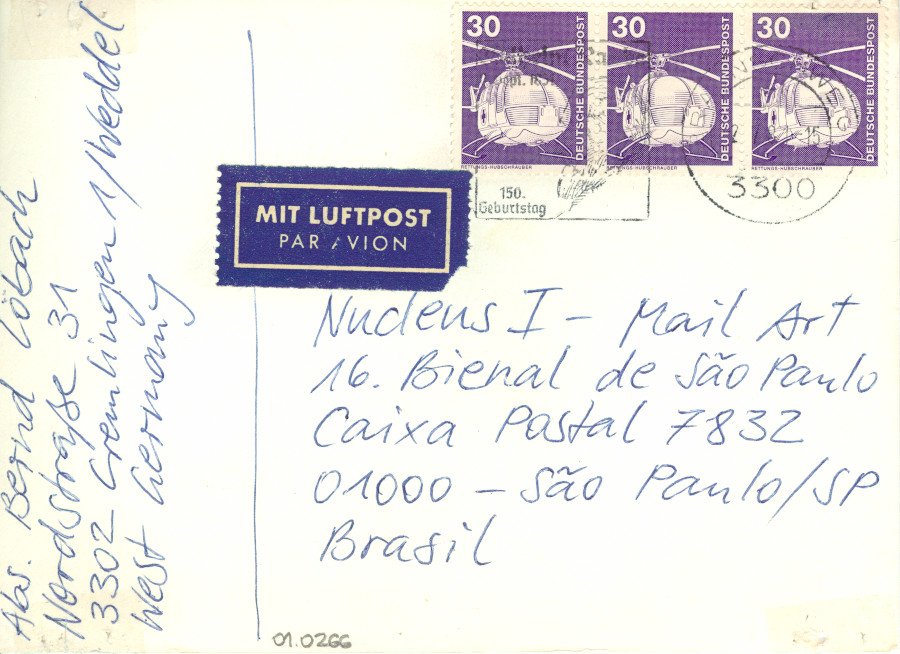 30
30
30
DEUTSCHE BUNDESPOST
DEUTSCHE BUNDESPOST
DEUTSCHE BUNDESPOST
RETTUNGS-HUBSCHRAUBER
RETTUNGS-HUBSCHRAUBER
RETTUNGS-HUBSCHRAUBER
150.
Geburtstag
3300
MIT LUFTPOST
PAR AVION
Abs. Bernd Löbach
Nordstraße 31
3302 Cremlingen 1/Weddel
West Germany
Nudeus I - Mail Art
16. Bienal de São Paulo
Caixa Postal 7832
01000 - São Paulo/SP
Brasil
01.0266